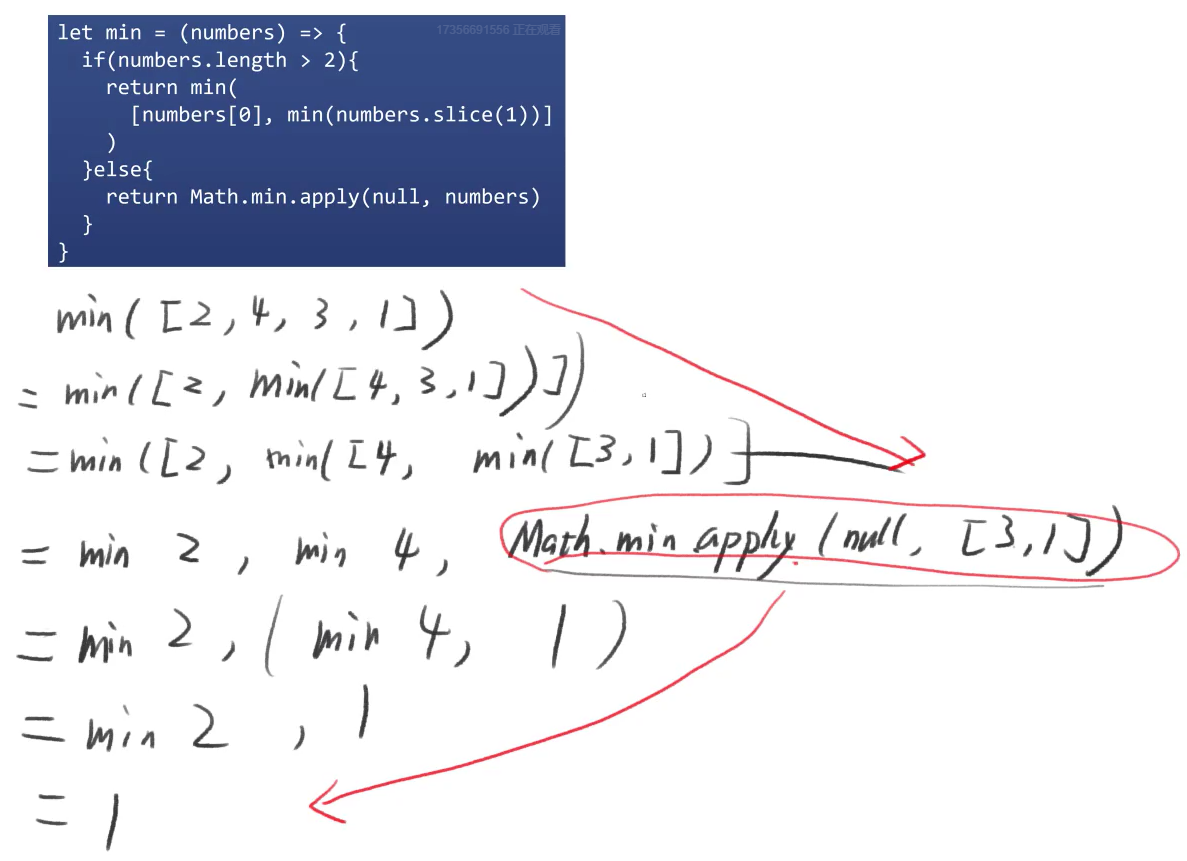 let min = (numbers) => {
17356691556 正在观看
if(numbers.length > 2){
return min(
[numbers[0], min(numbers.slice(1))]
)
}else{
return Math.min.apply(null, numbers)
}
}
min([2,4,3,1])
= min([2, min([4,3,1])])
= min([2, min([4, min([3,1])]
= min 2, min 4, Math.min apply (null, [3,1])
= min 2, ( min 4, 1 )
= min 2 , 1
= 1